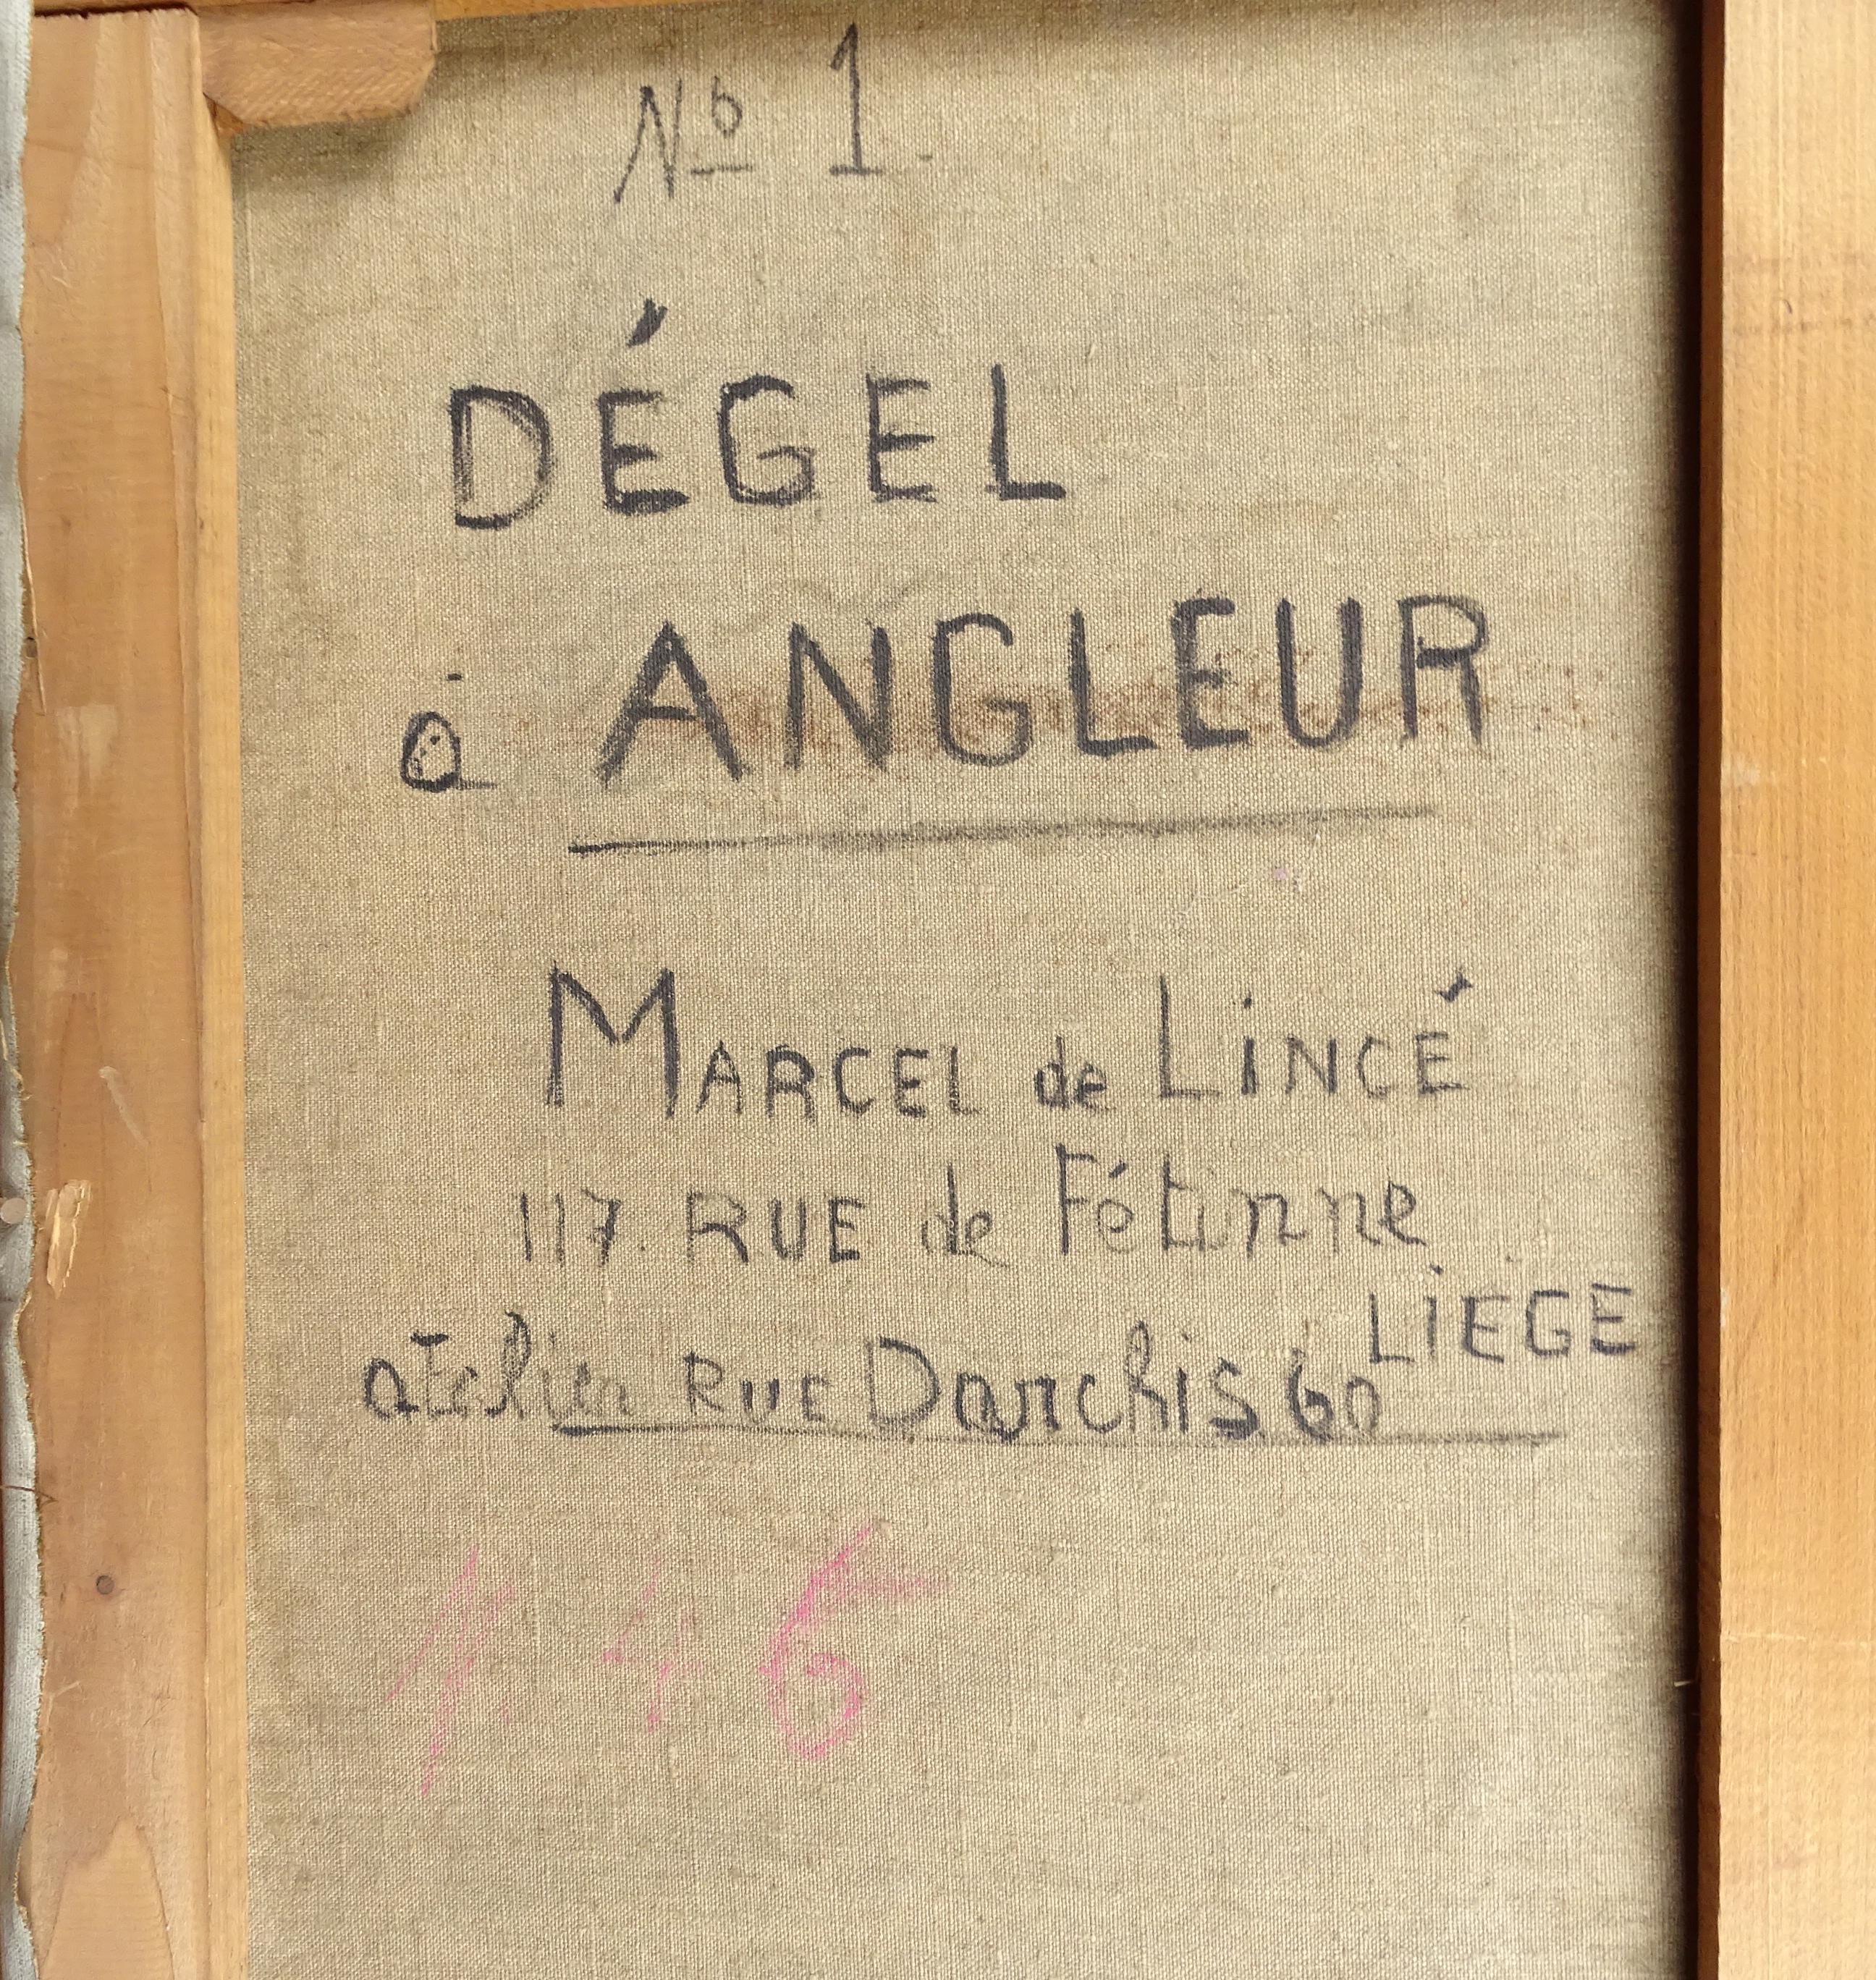 Nº 1.
DÉGEL
à ANGLEUR
MARCEL de LiNCÉ
117 RUE de Fétinne
LiEGE
atelier RUE Darchis 60